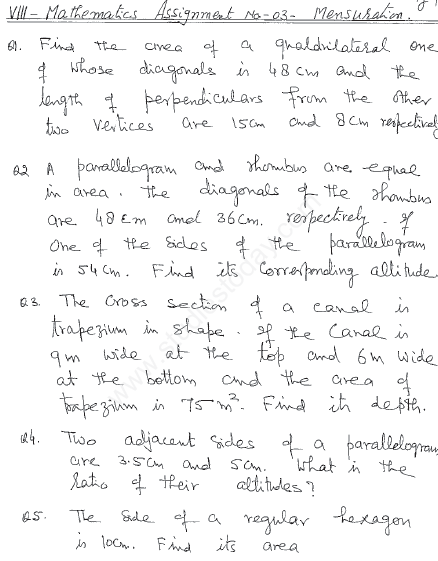 VIII - Mathematics Assignment No-03- Mensuration.
Q1. Find the area of a quadrilateral one
of whose diagonals is 48cm and the
length of perpendiculars from the other
two vertices are 15cm and 8cm respectively
Q2 A parallelogram and rhombus are equal
in area. The diagonals of the rhombus
are 48cm and 36cm. respectively. If
one of the sides of the parallelogram
is 54cm. Find its corresponding altitude
Q3. The cross section of a canal is
trapezium in shape. If the canal is
9m wide at the top and 6m wide
at the bottom and the area of
trapezium is 75m². Find its depth.
Q4. Two adjacent sides of a parallelogram
are 3.5cm and 5cm. What is the
ratio of their altitudes?
Q5. The side of a regular hexagon
is 10cm. Find its area
www.studiestoday.com